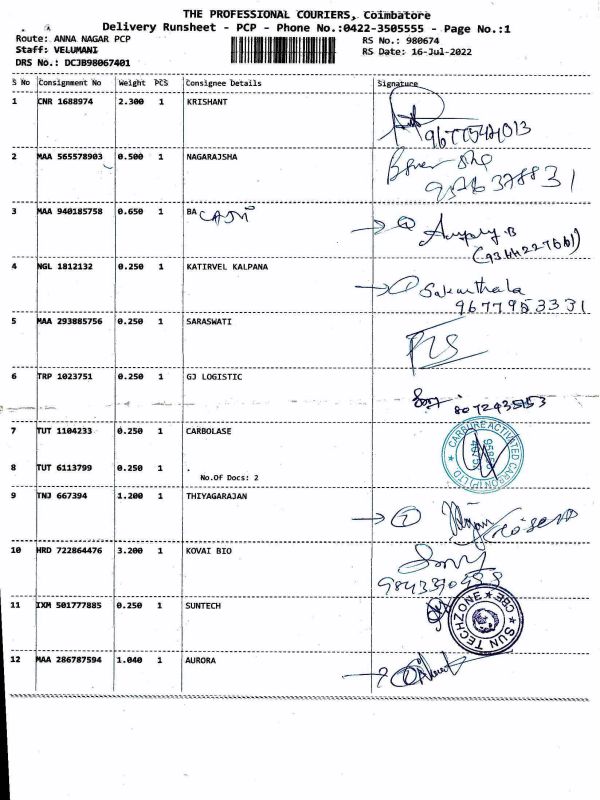 THE PROFESSIONAL COURIERS, Coimbatore
Delivery Runsheet - PCP - Phone No.:0422-3505555 - Page No.:1
Route: ANNA NAGAR PCP RS No.: 980674
Staff: VELUMANI RS Date: 16-Jul-2022
DRS No.: DCJB98067401
S No Consignment No Weight PCS Consignee Details Signature
1 CNR 1688974 2.300 1 KRISHANT
2 MAA 565578903 0.500 1 NAGARAJSHA
3 MAA 940185758 0.650 1 BA
4 NGL 1812132 0.250 1 KATIRVEL KALPANA
Sakunthala
9677953331
5 MAA 293885756 0.250 1 SARASWATI
6 TRP 1023751 0.250 1 GJ LOGISTIC
8072435153
7 TUT 1104233 0.250 1 CARBOLASE
CARBURE ACTIVATED CARBON (P) LTD
8 TUT 6113799 0.250 1 .
No.Of Docs: 2
9 TNJ 667394 1.200 1 THIYAGARAJAN
10 HRD 722864476 3.200 1 KOVAI BIO
11 IXM 501777885 0.250 1 SUNTECH
SUN TECHZONE CBE
12 MAA 286787594 1.040 1 AURORA